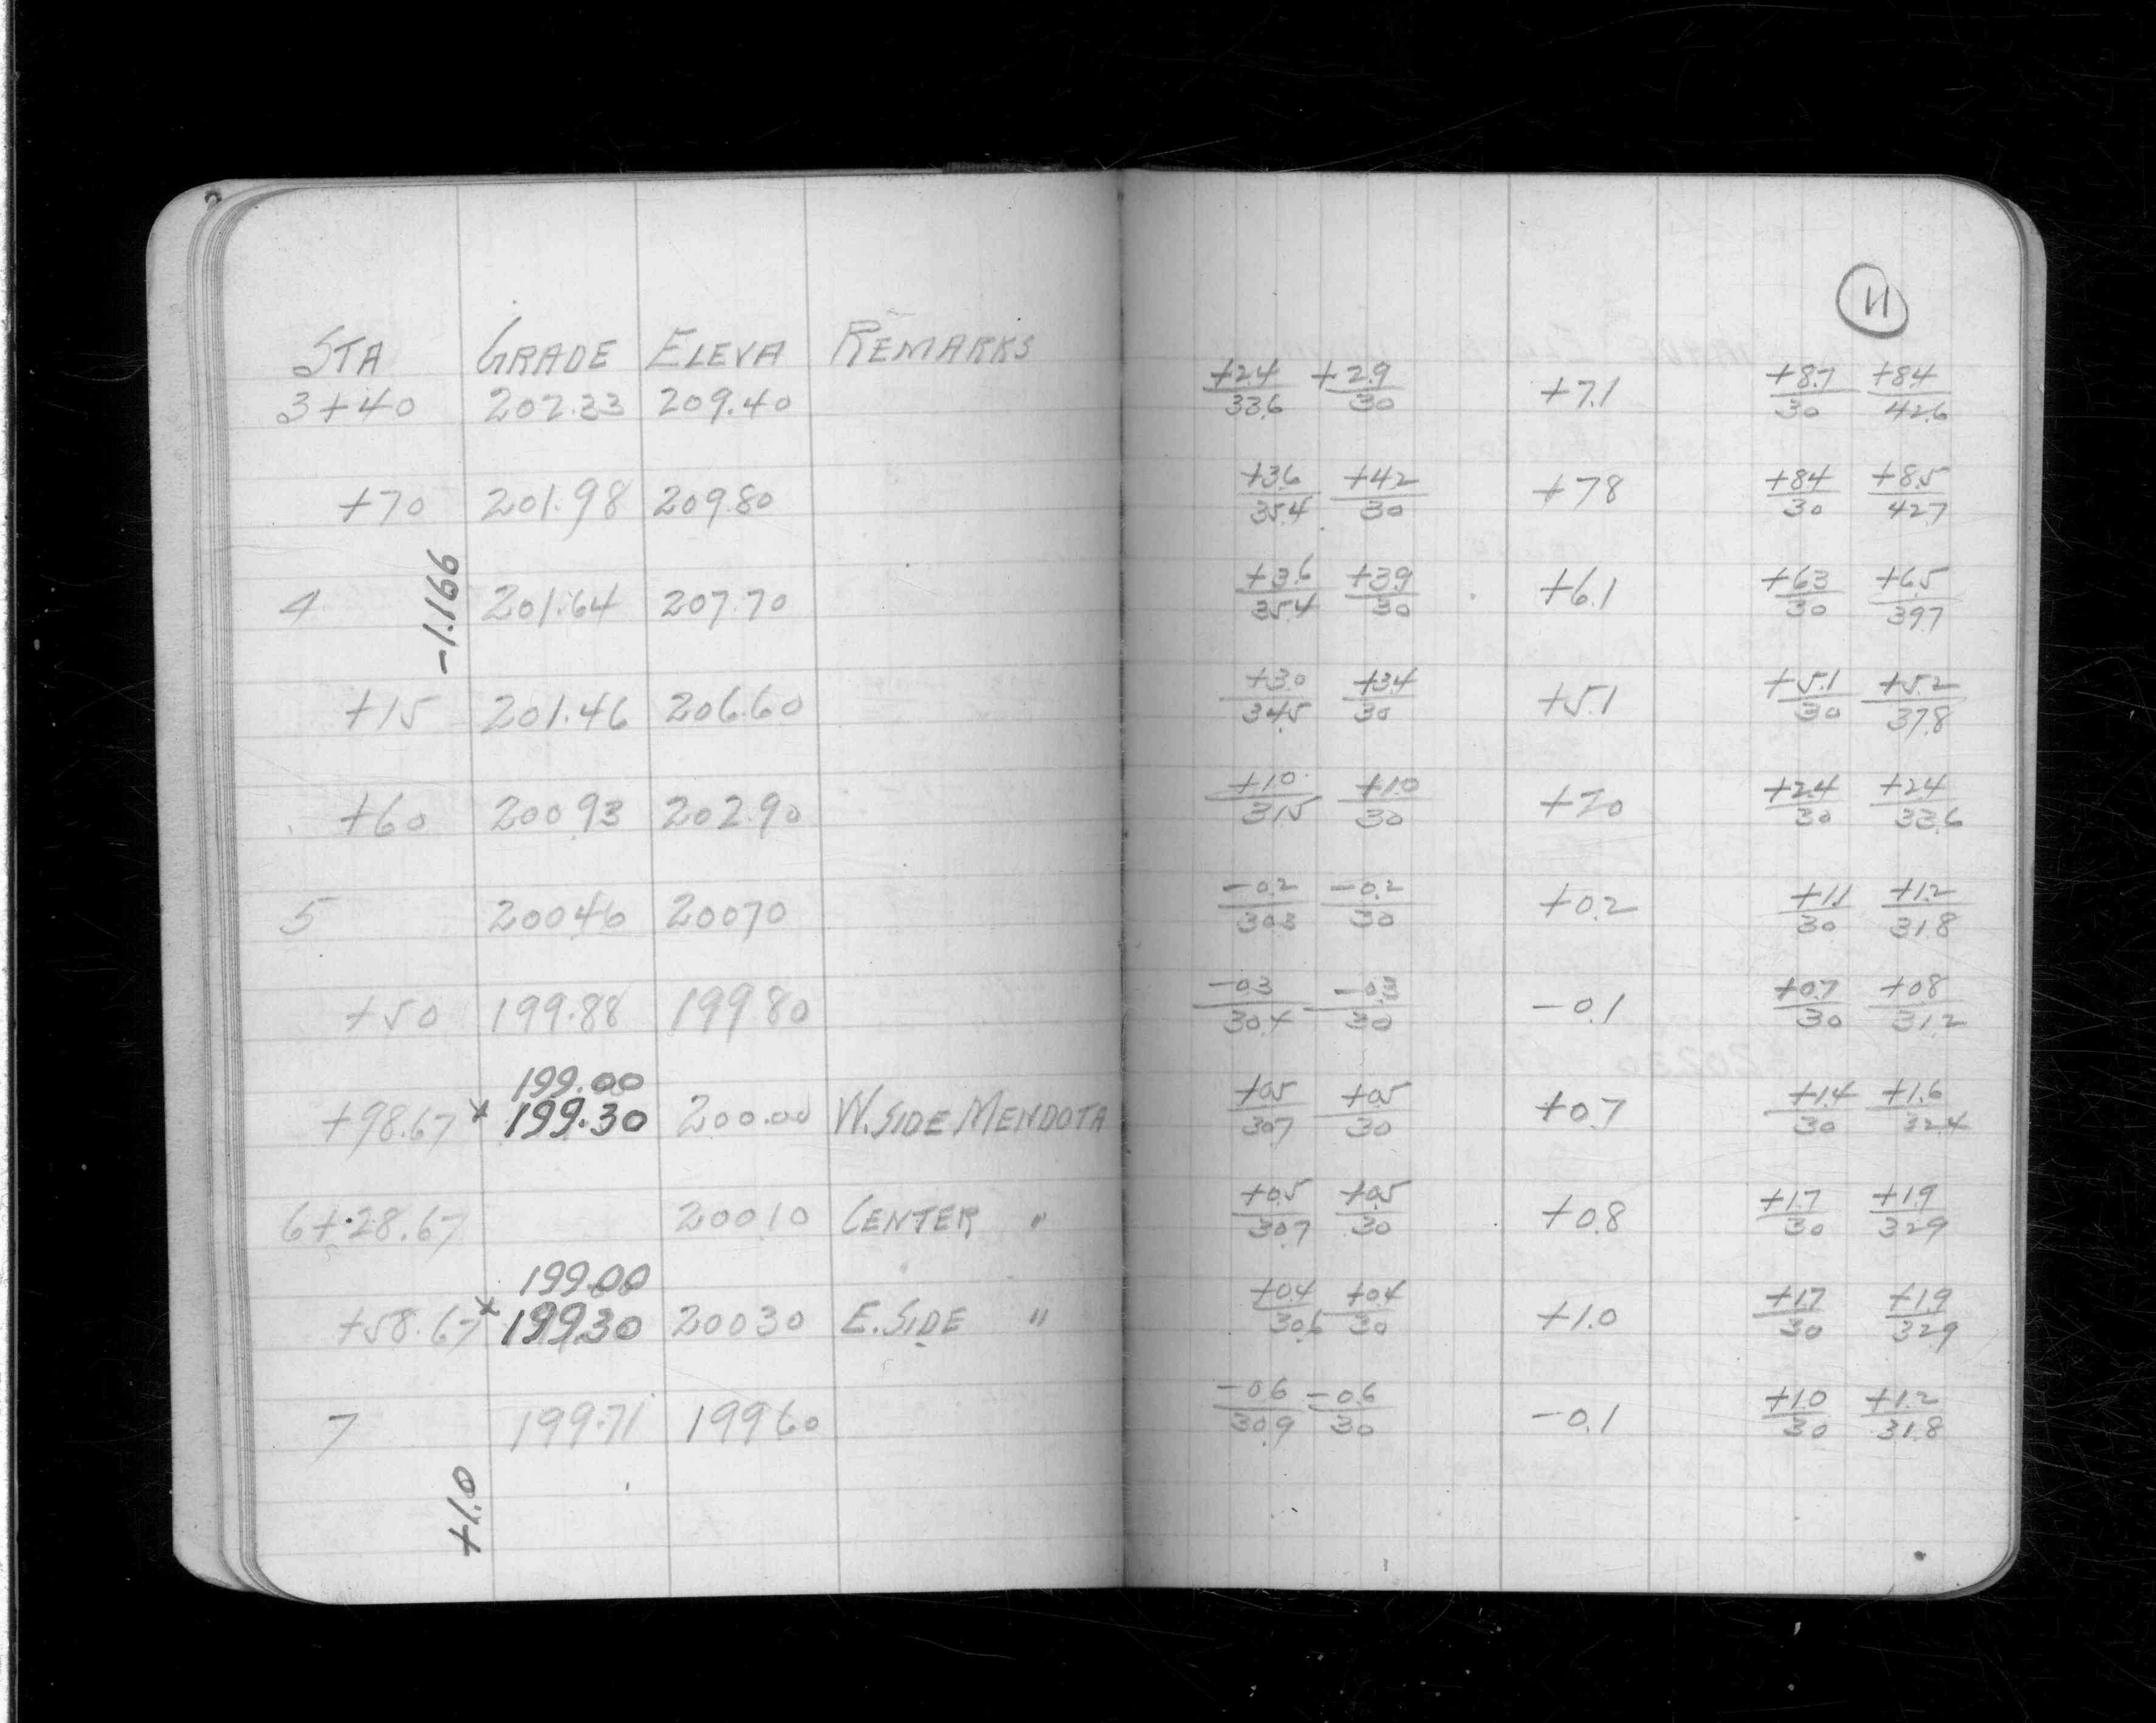 11
STA GRADE ELEVA REMARKS
3+40 202.33 209.40 +2.4/33.6 +2.9/30 +7.1 +8.7/30 +8.4/42.6
+70 201.98 209.80 +3.6/35.4 +4.2/30 +7.8 +8.4/30 +8.5/42.7
-1.166
4 201.64 207.70 +3.6/35.4 +3.9/30 +6.1 +6.3/30 +6.5/39.7
+15 201.46 206.60 +3.0/34.5 +3.4/30 +5.1 +5.1/30 +5.2/37.8
+60 200.93 202.90 +1.0/31.5 +1.0/30 +2.0 +2.4/30 +2.4/33.6
5 200.46 200.70 -0.2/30.3 -0.2/30 +0.2 +1.1/30 +1.2/31.8
+50 199.88 199.80 -0.3/30.4 -0.3/30 -0.1 +0.7/30 +0.8/31.2
199.00
+98.67 x 199.30 200.00 W. SIDE MENDOTA +0.5/30.7 +0.5/30 +0.7 +1.4/30 +1.6/32.4
6+28.67 200.10 CENTER " +0.5/30.7 +0.5/30 +0.8 +1.7/30 +1.9/32.9
199.00
+58.67 x 199.30 200.30 E. SIDE " +0.4/30.6 +0.4/30 +1.0 +1.7/30 +1.9/32.9
7 199.71 199.60 -0.6/30.9 -0.6/30 -0.1 +1.0/30 +1.2/31.8
+1.0